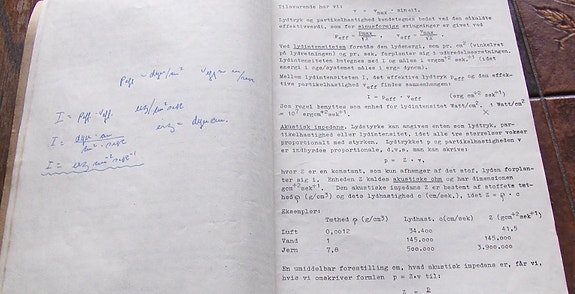 Peff = dyn/cm² Veff = cm/sek
I = Peff · Veff erg/cm² sek
I = dyn · cm / cm² · sek erg = dyn cm.
I = erg cm⁻² sek⁻¹
tilsvarende har vi:
v = vmax · sin ωt.
Lydtryk og partikelhastighed kendetegnes bedst ved den såkaldte
effektivværdi, som for sinusformige svingninger er givet ved
Peff = pmax/√2 , Veff = vmax/√2
Ved lydintensiteten forstås den lydenergi, som pr. cm² (vinkelret
på lydretningen) og pr. sek. forplanter sig i udbredelsesretningen.
Lydintensiteten betegnes med I og måles i erg cm⁻² sek⁻¹ (idet
energi i cgs/systemet måles i erg = dyn cm).
Mellem lydintensiteten I, det effektive lydtryk Peff og den effek-
tive partikelhastighed Veff findes sammenhængen:
I = Peff · Veff (erg cm⁻² sek⁻¹)
Som regel benyttes som enhed for lydintensitet Watt/cm². 1 Watt/cm²
= 10⁷ erg cm⁻² sek⁻¹.
Akustisk impedans. Lydstyrke kan angives enten som lydtryk, par-
tikelhastighed eller lydintensitet, idet alle tre størrelser vokser
proportionalt med styrken. Lydtrykket p og partikelhastigheden v
er indbyrdes proportionale, d.v.s. man kan skrive:
p = Z · v,
hvor Z er en konstant, som kun afhænger af det stof, lyden forplan-
ter sig i. Enheden Z kaldes akustiske ohm og har dimensionen
g cm⁻² sek⁻¹. Den akustiske impedans Z er bestemt af stoffets tæt-
hed ρ (g/cm³) og dets lydhastighed c (cm/sek.), idet Z = ρ · c
Eksempler:
Tæthed ρ (g/cm³) Lydhast. c(cm/sek) Z (g cm⁻² sek⁻¹)
Luft 0,0012 34.400 41,5
Vand 1 145.000 145.000
Jern 7,8 500.000 3.900.000
En umiddelbar forestilling om, hvad akustisk impedans er, får vi,
hvis vi omskriver formlen p = Z·v til:
Z = p